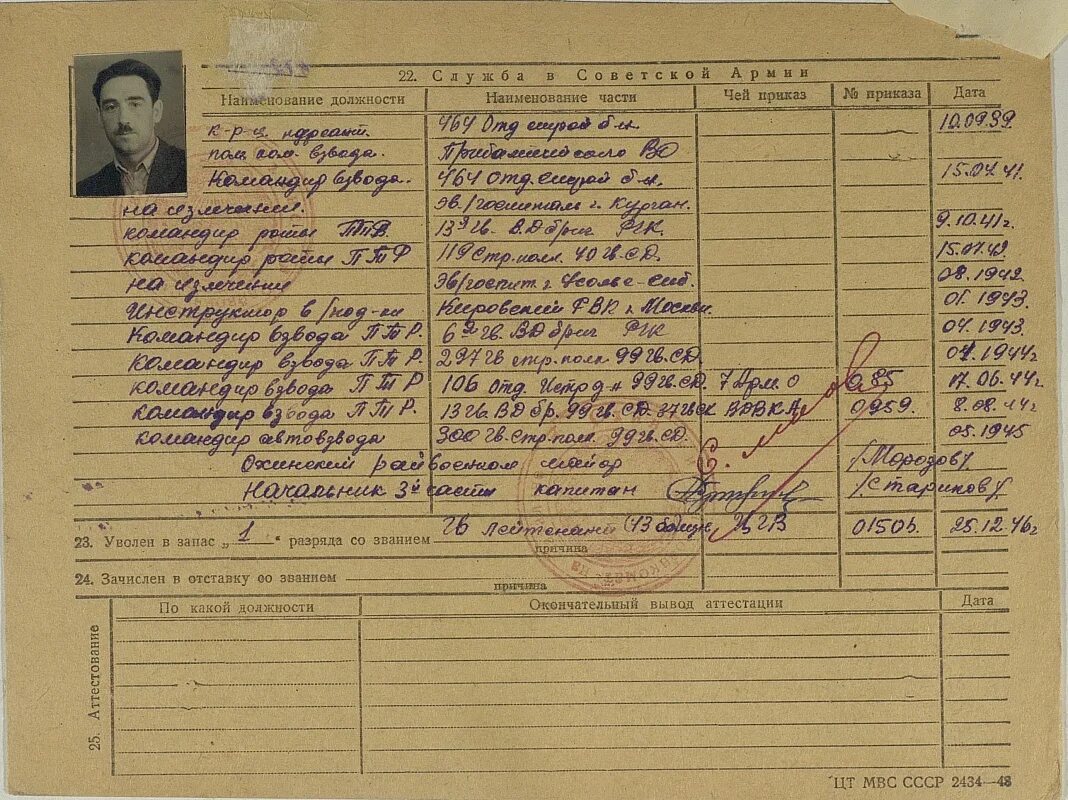 22. Служба в Советской Армии
Наименование должности Наименование части Чей приказ № приказа Дата
к-р-ц 464 Отд б-н. 10.09.39.
пом. ком. взвода. ВО
Командир взвода. 464 Отд б-н. 15.04.41.
на излечении. эв/госпиталь г. Курган.
командир роты ПТР 13 гв. ВД бриг РГК. 9.10.41г.
командир роты ПТР 119 Стр. полк 40 гв. СД. 15.07.42.
на излечении эв/госпит. г. Усолье-Сиб. 08.1942
Инструктор в/под-ки Кировский РВК г. Москвы. 01.1943
Командир взвода ПТР. 6 гв. ВД бриг РГК 04.1943
Командир взвода ПТР. 297 гв стр. полк 99 гв. СД. 01.1944г
командир взвода ПТР 106 Отд. Истр д-н 99 гв. СД. 7 Арм. О 085 17.06.44г
командир взвода ПТР. 13 гв. ВД бр. 99 гв. СД. 37 гв ск ВДВ КА 0959. 8.08.44г
командир автовзвода 300 гв. Стр. полк. 99 гв. СД. 05.1945
Охинский райвоенком майор /Морозов/.
Начальник 3й части капитан /Стариков/.
23. Уволен в запас „ 1 “ разряда со званием гв лейтенант ЦГВ 01505. 25.12.46г
причина
24. Зачислен в отставку со званием
причина
25. Аттестование
По какой должности Окончательный вывод аттестации Дата
ЦТ МВС СССР 2434—48